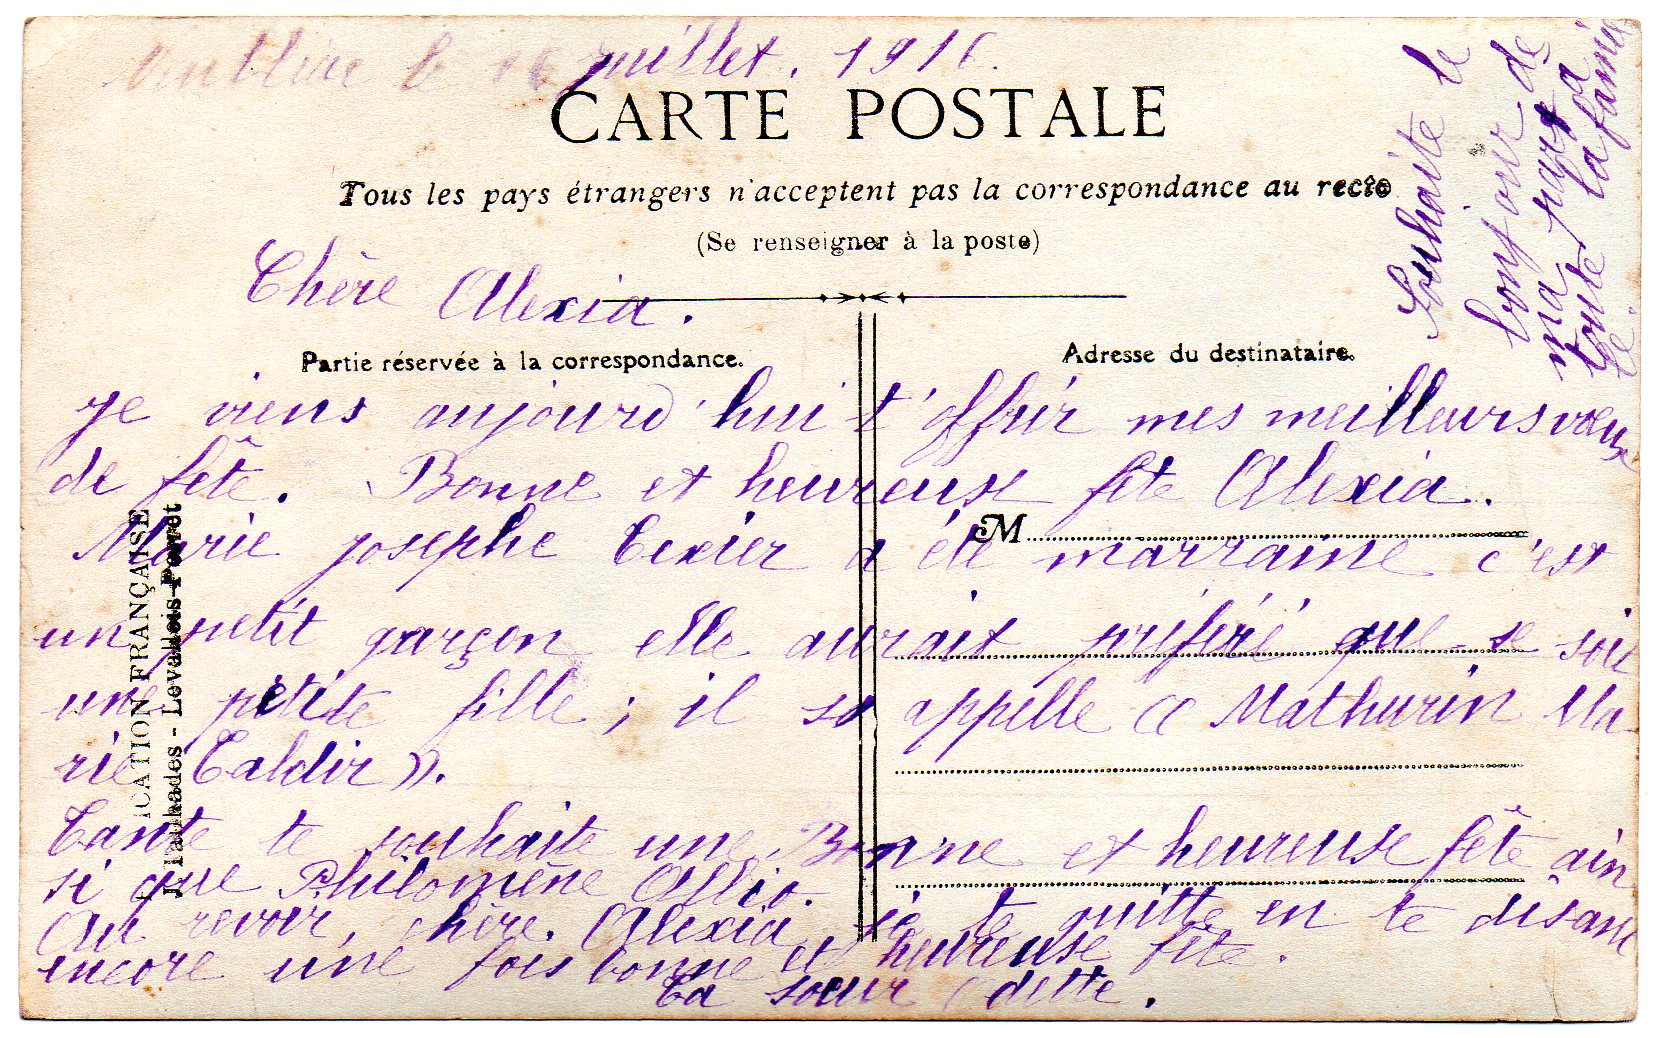 le 16 juillet. 1916.
CARTE POSTALE
Tous les pays étrangers n'acceptent pas la correspondance au recto
(Se renseigner à la poste)
Chère Alexia.
Partie réservée à la correspondance.
Adresse du destinataire.
je viens aujourd'hui t'offrir mes meilleurs vœux
de fête. Bonne et heureuse fête Alexia.
M
Marie josephe Texier a été marraine c'est
un petit garçon elle aurait préféré que se soit
une petite fille ; il se appelle « Mathurin Ma
rie Taldir ».
Tante te souhaite une Bonne et heureuse fête ain
si que Philomène Allio.
Au revoir, chère Alexia je te quitte en te disant
encore une fois bonne et heureuse fête.
Ta sœur Odette.
Souhaite le
bonjour de
ma part a
toute la fami
lle.
ICATION FRANÇAISE
- Levallois-Perret